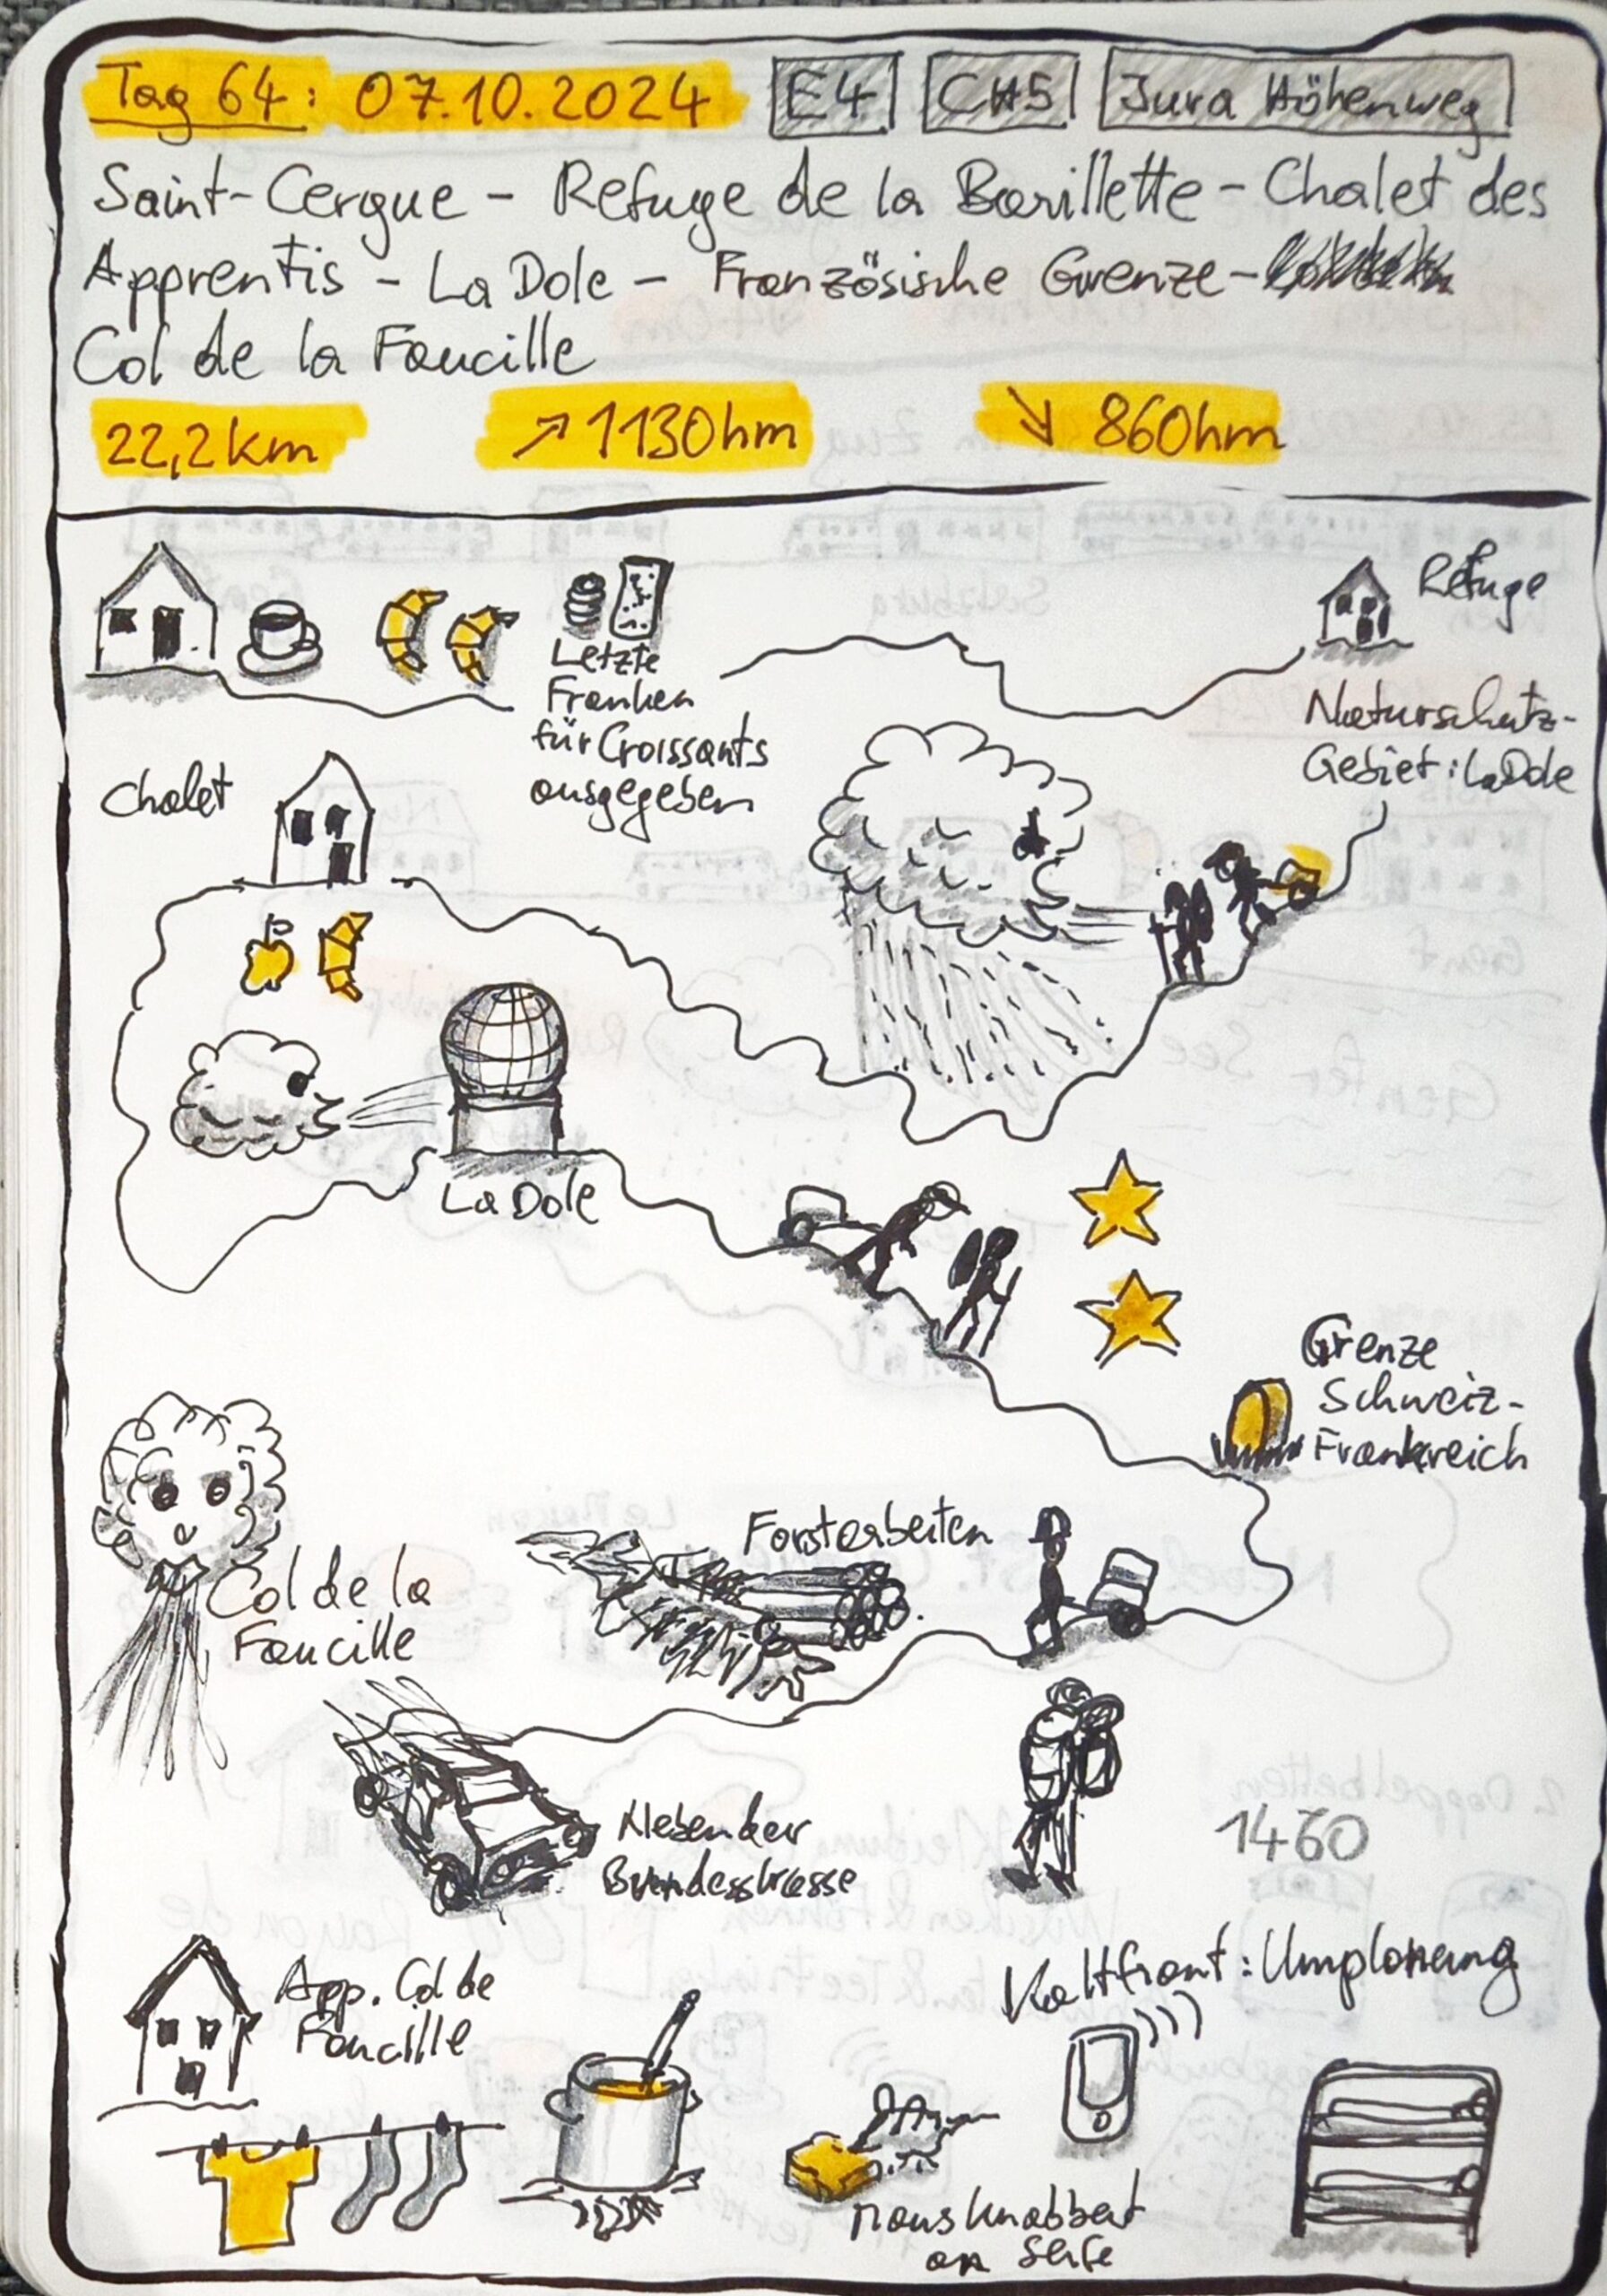 Tag 64: 07.10.2024 E4 CH5 Jura Höhenweg
Saint-Cergue - Refuge de la Barillette - Chalet des
Apprentis - La Dole - Französische Grenze -
Col de la Faucille
22,2km ↗ 1130hm ↘ 860hm
Refuge
Letzte
Franken
für Croissants
ausgegeben
Naturschutz-
Gebiet: La Dole
Chalet
La Dole
Grenze
Schweiz-
Frankreich
Forstarbeiten
Col de la
Faucille
Neben der
Bundesstrasse
1460
App. Col de
Faucille
Kaltfront: Umplanung
Maus knabbert
an Seife